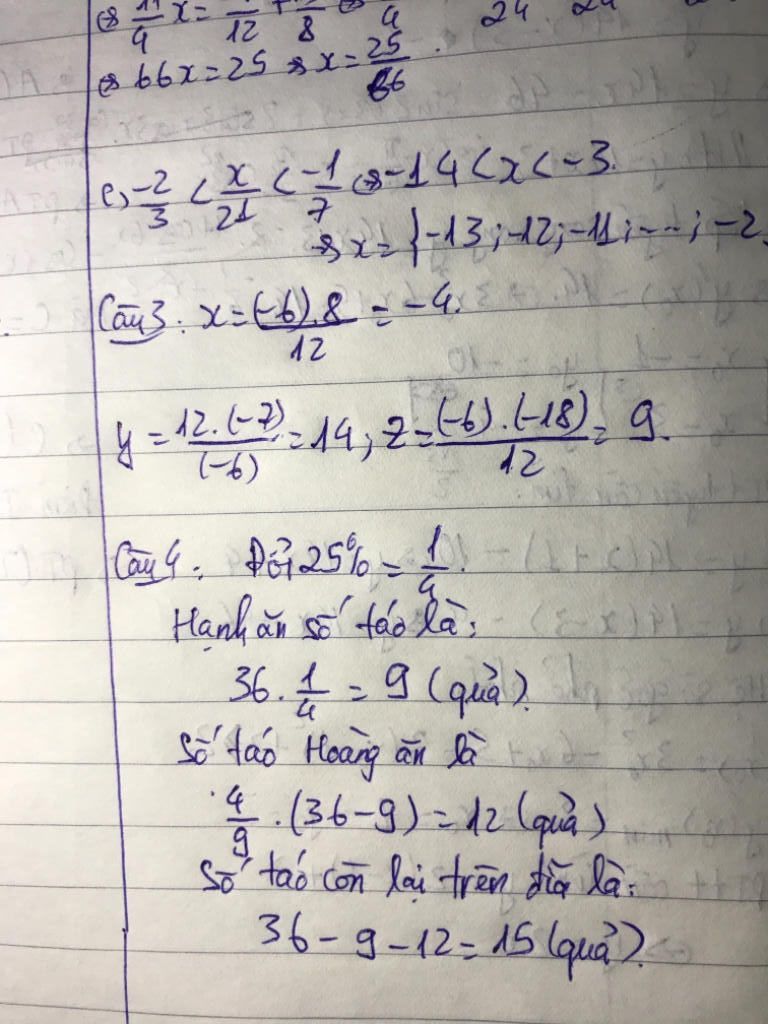 ⇔ 11/4 x = /12 + /8 ⇔ /4 24 24
⇔ 66x = 25 ⇔ x = 25/66.
e, -2/3 < x/21 < -1/7 ⇔ -14 < x < -3.
⇔ x = {-13; -12; -11; ...; -2
Câu 3: x = (-6).8/12 = -4.
y = 12.(-7)/(-6) = 14; z = (-6).(-18)/12 = 9.
Câu 4: Đổi 25% = 1/4.
Hạnh ăn số táo là:
36 . 1/4 = 9 (quả).
Số táo Hoàng ăn là
4/9 . (36 - 9) = 12 (quả)
Số táo còn lại trên đĩa là:
36 - 9 - 12 = 15 (quả).